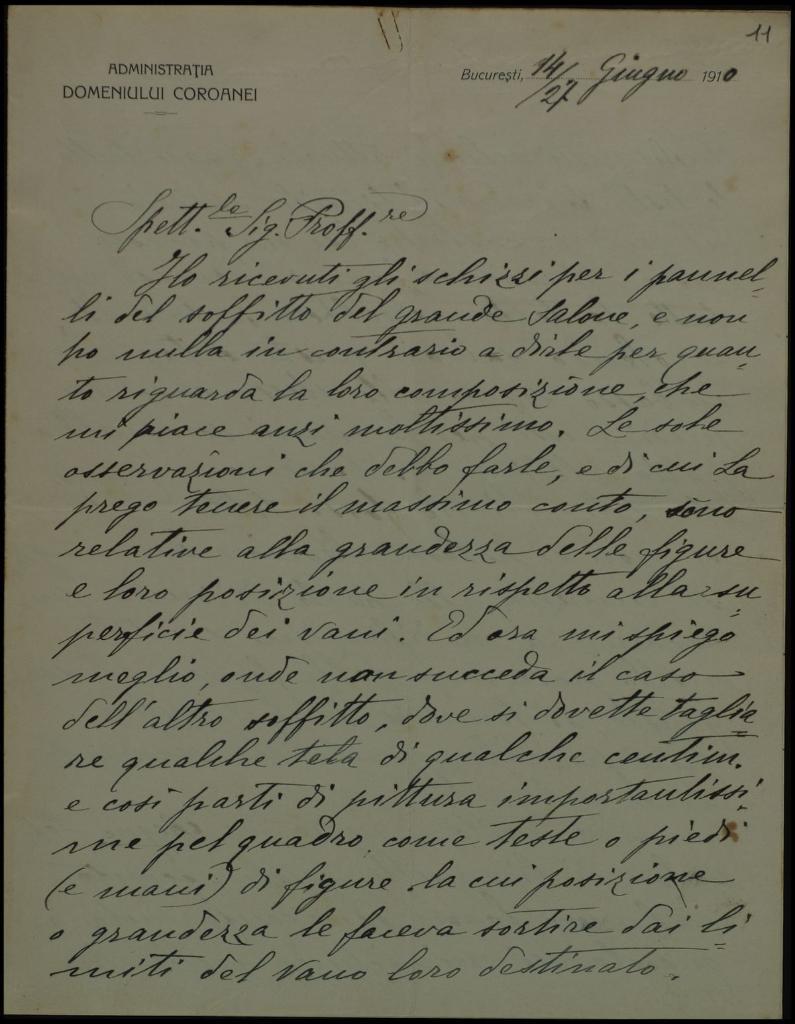 11
ADMINISTRAŢIA
DOMENIULUI COROANEI
Bucureşti, 14/27 Giugno 1910
Spett.le Sig. Proff.re
Ho ricevuti gli schizzi per i pannel-
li del soffitto del grande Salone, e non
ho nulla in contrario a dirle per quan-
to riguarda la loro composizione, che
mi piace anzi moltissimo. Le sole
osservazioni che debbo farle, e di cui La
prego tenere il massimo conto, sono
relative alla grandezza delle figure
e loro posizione in rispetto alla su-
perficie dei vani. Ed ora mi spiego
meglio, onde non succeda il caso
dell'altro soffitto, dove si dovette taglia-
re qualche tela di qualche centim.
e così parti di pittura importantissi-
me pel quadro, come teste o piedi
(e mani) di figure la cui posizione
o grandezza le faceva sortire dai li-
miti del vano loro destinato.